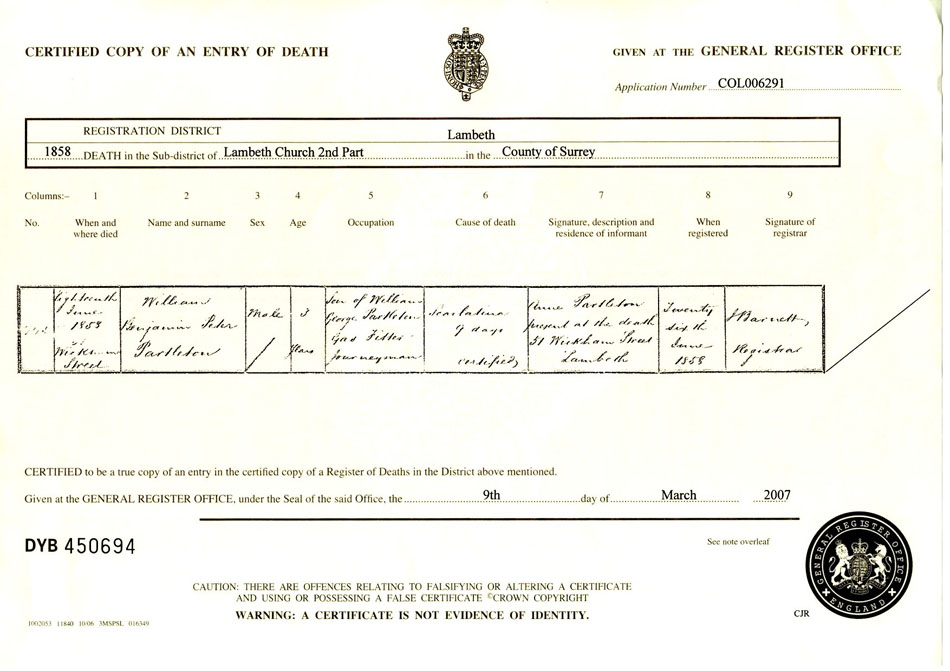 CERTIFIED COPY OF AN ENTRY OF DEATH
GIVEN AT THE GENERAL REGISTER OFFICE
Application Number COL006291
REGISTRATION DISTRICT Lambeth
1858 DEATH in the Sub-district of Lambeth Church 2nd Part in the County of Surrey
Columns:– 1 2 3 4 5 6 7 8 9
No. When and where died Name and surname Sex Age Occupation Cause of death Signature, description and residence of informant When registered Signature of registrar
Eighteenth June 1858
Wickham Street
William
Benjamin Peter
Partleton
Male
3
Years
Son of William
George Partleton
Gas Fitter
Journeyman
Scarlatina
9 days
certified
Anne Partleton
present at the death
31 Wickham Street
Lambeth
Twenty
sixth
June
1858
J Barnett,
Registrar
CERTIFIED to be a true copy of an entry in the certified copy of a Register of Deaths in the District above mentioned.
Given at the GENERAL REGISTER OFFICE, under the Seal of the said Office, the 9th day of March 2007
DYB 450694
See note overleaf
GENERAL REGISTER OFFICE
ENGLAND
CAUTION: THERE ARE OFFENCES RELATING TO FALSIFYING OR ALTERING A CERTIFICATE
AND USING OR POSSESSING A FALSE CERTIFICATE ©CROWN COPYRIGHT
WARNING: A CERTIFICATE IS NOT EVIDENCE OF IDENTITY.
CJR
1002053 11840 10/06 3MSPSL 016349